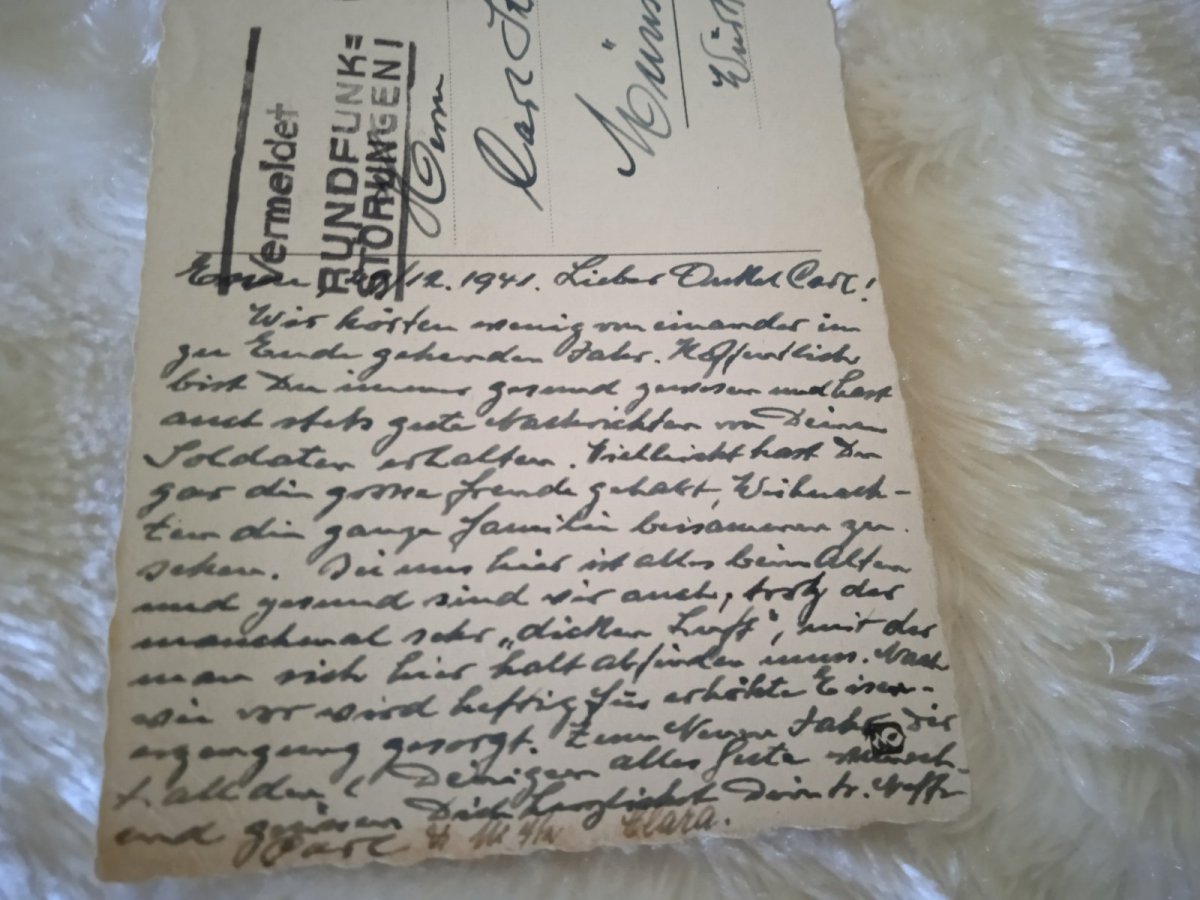 Vermeldet
RUNDFUNK=
STÖRUNGEN!
Herrn
Carl
Müns
Würt
Essen /12. 1941. Lieber Onkel Carl!
Wir hörten wenig von einander im
zu Ende gehenden Jahr. Hoffentlich
bist Du immer gesund gewesen und hast
auch stets gute Nachrichten von Deinen
Soldaten erhalten. Vielleicht hast Du
gar die grosse Freude gehabt, Weihnach-
ten die ganze Familie beisammen zu
sehen. Bei uns hier ist alles beim Alten
und gesund sind wir auch, trotz der
manchmal sehr „dicken Luft", mit der
man sich hier halt abfinden muss. Nach
wie vor wird heftig für erhöhte Eisen-
erzeugung gesorgt. Zum Neuen Jahr Dir
+ all den Deinigen alles Gute wünsch-
end grüssen Dich herzlichst Dein tr. Neffe
Carl Clara.